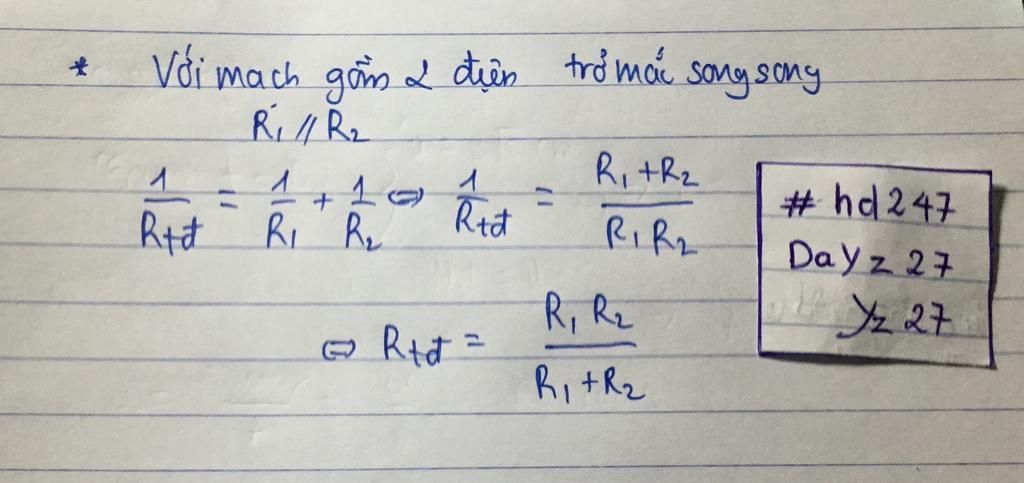 * Với mạch gồm 2 điện trở mắc song song
R₁ // R₂
1/Rtđ = 1/R₁ + 1/R₂ ⇔ 1/Rtđ = (R₁ + R₂)/(R₁ R₂)
⇔ Rtđ = (R₁ R₂)/(R₁ + R₂)
# hd247
DaYz 27
Yz 27